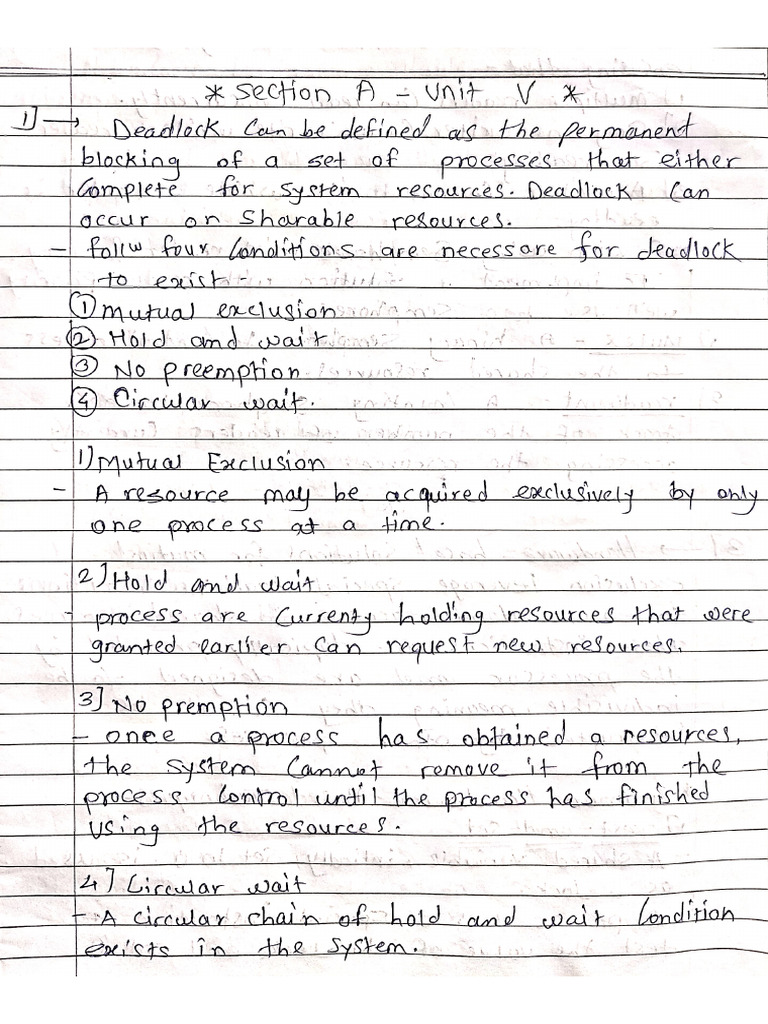 * Section A - Unit V *
1] → Deadlock can be defined as the permanent
blocking of a set of processes that either
Complete for system resources. Deadlock can
occur on sharable resources.
- follw four conditions are necessare for deadlock
to exist -
① Mutual exclusion
② Hold and wait
③ No preemption
④ Circular wait.
1) Mutual Exclusion
- A resource may be acquired exclusively by only
one process at a time.
2] Hold and wait
- process are currenty holding resources that were
granted earlier can request new resources.
3] No premption
- once a process has obtained a resources,
the system cannot remove it from the
process control until the process has finished
using the resources.
4] Circular wait
- A circular chain of hold and wait condition
exists in the system.